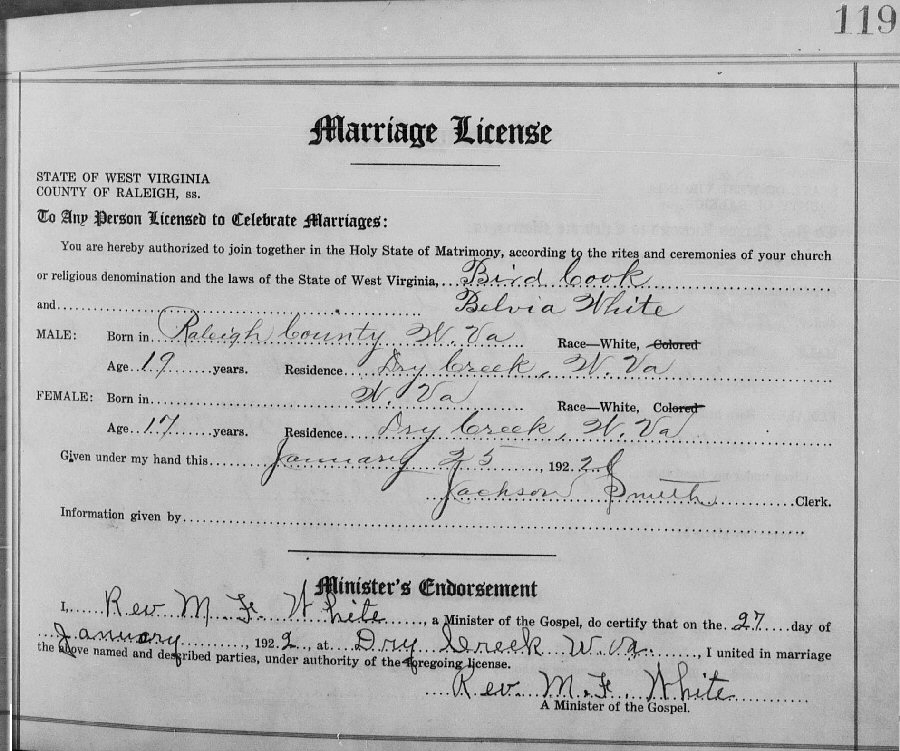 119
Marriage License
STATE OF WEST VIRGINIA
COUNTY OF RALEIGH, ss.
To Any Person Licensed to Celebrate Marriages:
You are hereby authorized to join together in the Holy State of Matrimony, according to the rites and ceremonies of your church
or religious denomination and the laws of the State of West Virginia, Bird Cook
and Belvia White
MALE: Born in Raleigh County W. Va Race—White, Colored
Age 19 years. Residence Dry Creek, W. Va
FEMALE: Born in W. Va Race—White, Colored
Age 17 years. Residence Dry Creek, W. Va
Given under my hand this January 25, 1922
Jackson Smith Clerk.
Information given by
Minister's Endorsement
I, Rev M. F. White, a Minister of the Gospel, do certify that on the 27 day of
January, 1922, at Dry Creek W Va., I united in marriage
the above named and described parties, under authority of the foregoing license.
Rev. M. F. White
A Minister of the Gospel.